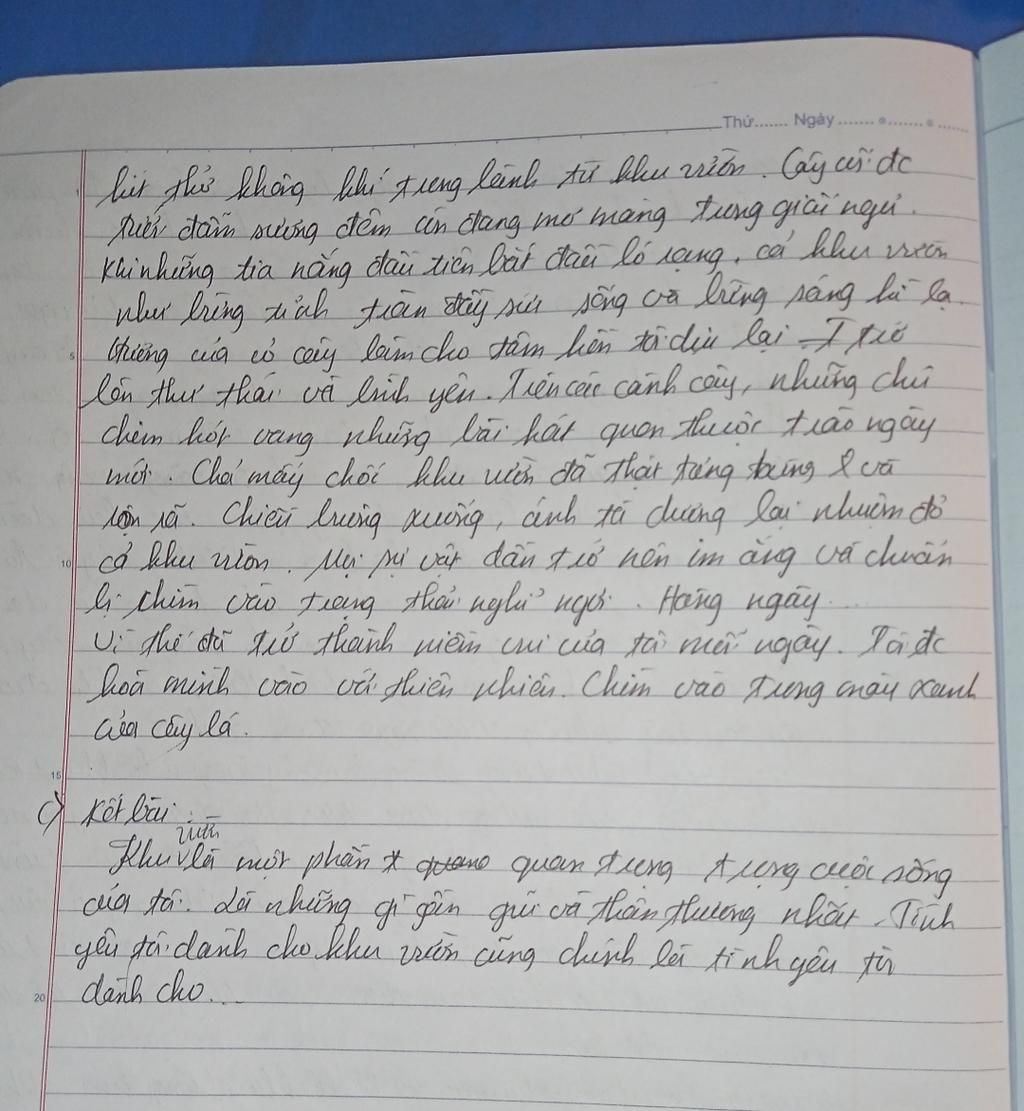 Thứ....... Ngày ........ ........ .......
hít thở không khí trong lành từ khu vườn. Cây cối đc
tưới đẫm sương đêm còn đang mơ màng trong giấc ngủ.
Khi những tia nắng đầu tiên bắt đầu ló rạng, cả khu vườn
như bừng tỉnh tràn đầy sức sống và bừng sáng kì lạ.
của cỏ cây làm cho tâm hồn tôi dịu lại trở
5
lên thư thái và bình yên. Trên các cành cây, những chú
chim hót vang những bài hát quen thuộc chào ngày
mới. Chả mấy chốc khu vườn đã thật tưng bừng và
rộn rã. Chiều buông xuống, ánh tà dương lại nhuộm đỏ
10 cả khu vườn. Mọi sự vật dần trở nên im ắng và chuẩn
bị chìm vào trạng thái nghỉ ngơi. Hàng ngày...
Vì thế đã trở thành niềm vui của tôi mỗi ngày. Tôi đc
hoà mình vào với thiên nhiên. Chìm vào trong màu xanh
của cây lá.
15
c) Kết bài:
Khu vườn là một phần quan trọng trong cuộc sống
của tôi. Là những gì gần gũi và thân thương nhất. Tình
yêu tôi dành cho khu vườn cũng chính là tình yêu tôi
20 dành cho...